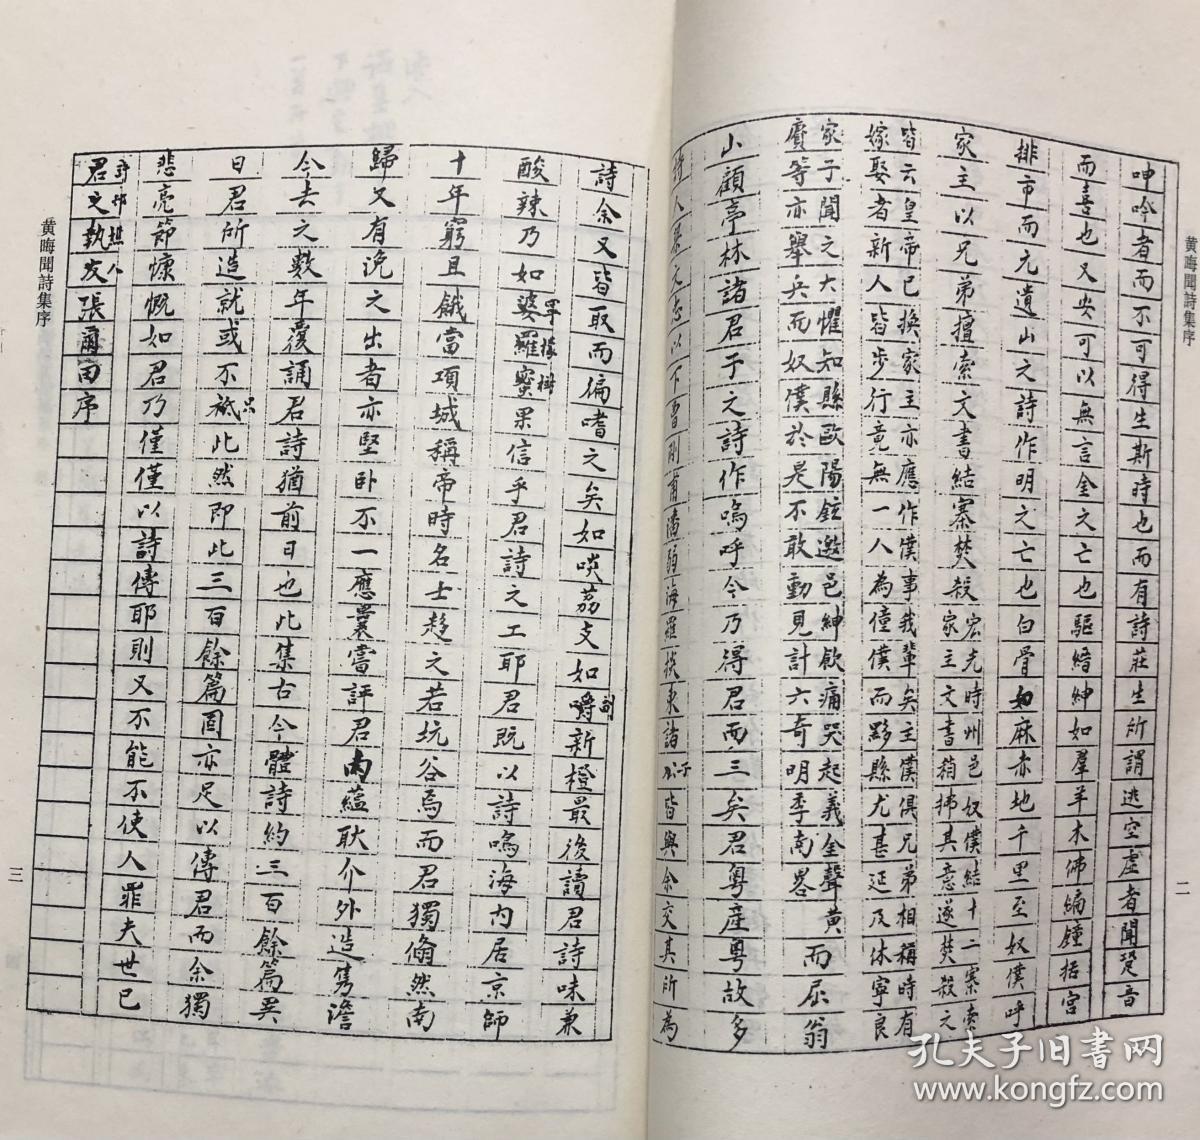 黄晦聞詩集序
二
呻吟者而不可得生斯時也而有詩莊生所謂逃空虛者聞跫音
而喜也又安可以無言金之亡也驅縉紳如羣羊木佛編鐘括宮
排市而元遺山之詩作明之亡也白骨如麻赤地千里至奴僕呼
家主以兄弟擅索文書結寨焚殺
宏光時州邑奴僕結十二寨索
家主文書稍拂其意遂焚殺之
皆云皇帝已換家主亦應作僕事我輩矣主僕俱兄弟相稱時有
嫁娶者新人皆步行竟無一人為僮僕而黟縣尤甚延及休寧良
家子聞之大懼知縣歐陽鉉邀邑紳飲痛哭起義全聲黃
賡等亦舉兵而奴僕於是不敢動見計六奇明季南畧
而屈翁
山顧亭林諸君子之詩作嗚呼今乃得君而三矣君粵產粵故多
詩人以下曾剛甫潘弱海羅掞東諸公子皆與余交其所為
詩余又皆取而徧嗜之矣如啖荔支如嚼新橙最後讀君詩味兼
酸辣乃如婆羅蜜果信乎君詩之工耶君既以詩鳴海内居京師
十年窮且餓當項城稱帝時名士趍之若坑谷焉而君獨翛然南
歸又有浼之出者亦堅卧不一應曩嘗評君内蘊耿介外造雋澹
今去之數年覆誦君詩猶前日也此集古今體詩約三百餘篇異
日君所造就或不祗此然即此三百餘篇固亦足以傳君而余獨
悲亮節慷慨如君乃僅僅以詩傳耶則又不能不使人罪夫世已
君之執友張爾田序
黄晦聞詩集序
三
孔夫子旧书网
www.kongfz.com